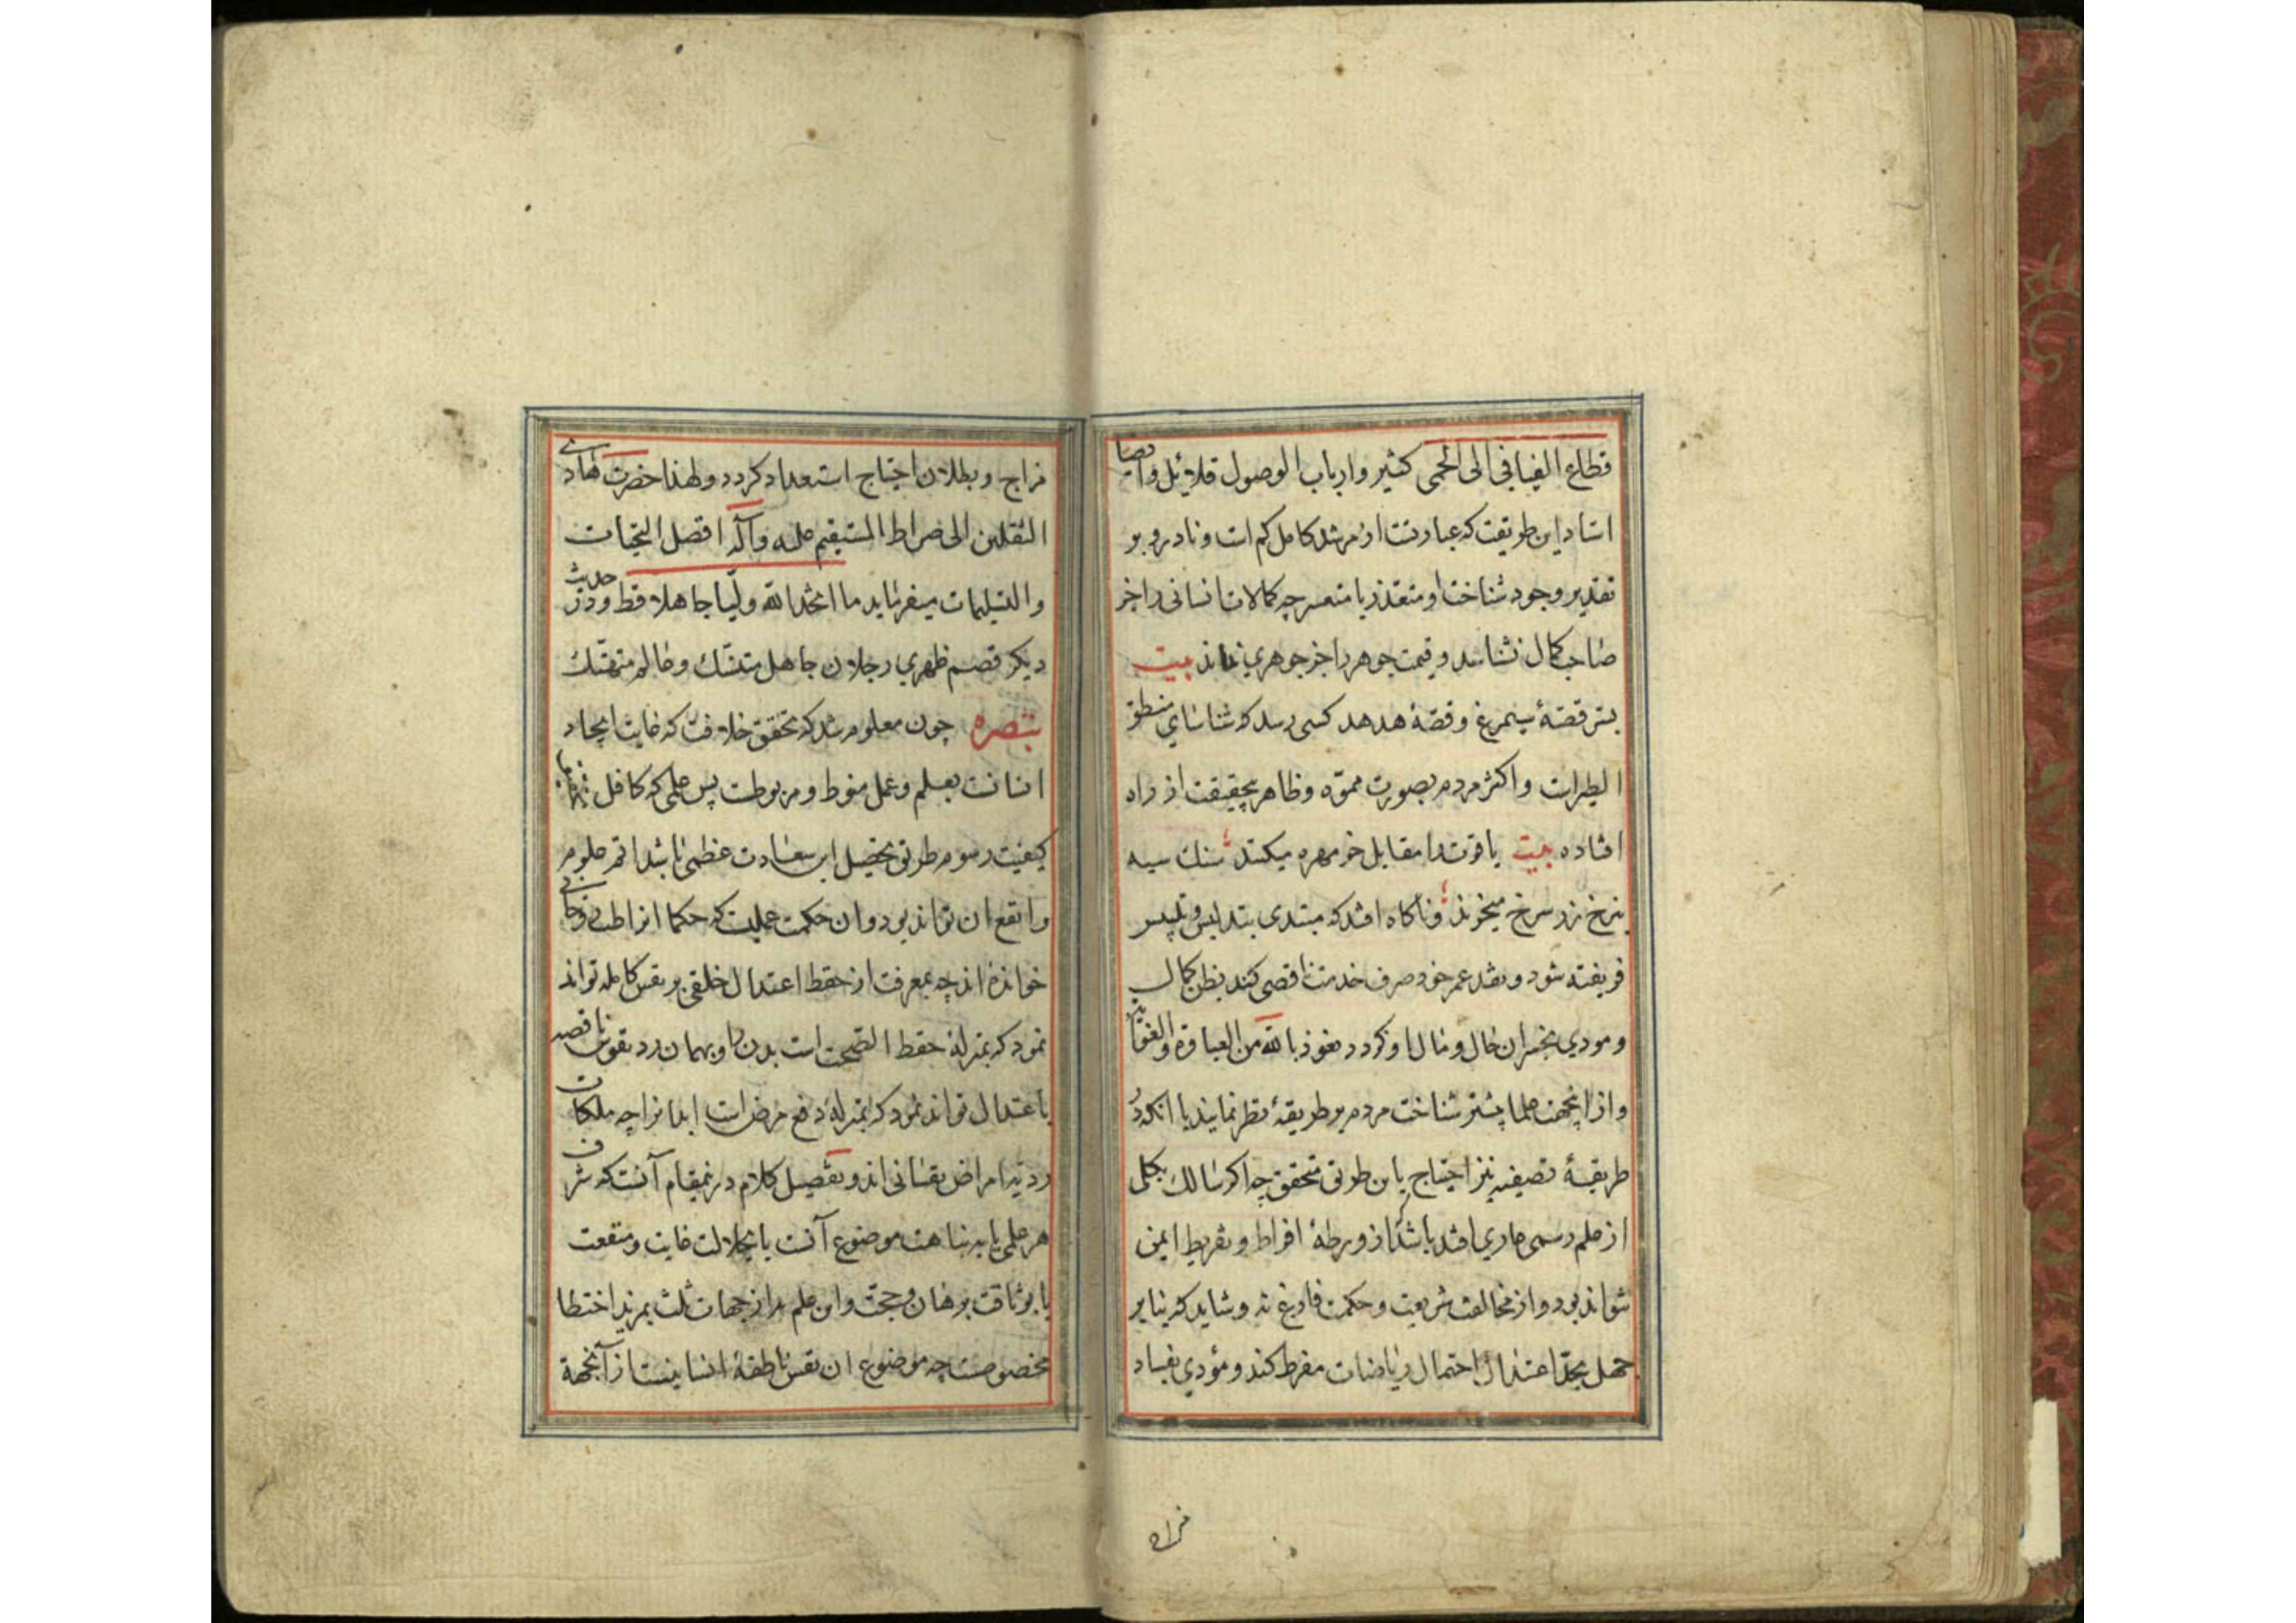 قطاع الفیافی الی الحمی کثیر وارباب الوصول قلائل وایضا
استاد این طریقت که عبارتست از مرشد کامل کم است ونادر و بر
تقدیر وجود شناخت او متعذر یا متعسر چه کمالات انسانی را جز
صاحب کمال نشناسد و قیمت جوهر را جز جوهری نداند بیت
قصۀ سیمرغ و قصۀ هدهد کسی رسد که شناسای منطق
الطیرات و اکثر مردم بصورت مموّه و ظاهر بی‌حقیقت از راه
افتاده بیت یاقوت را مقابل خرمهره میکنند سنک سیه
بنرخ زر سرخ میخرند و ناکاه افتد که مبتدی بتدلیس و تلبیس
فریفته شود و نقد عمر خود صرف خدمت ناقصی کند بظن کمال
و مودی بخسران حال و مال او کردد نعوذ بالله من الغباوة والغوایة
و از اینجهت علما بیشتر شناخت مردم بر طریقۀ نظر نمایند با آنکه در
طریقۀ تصفیه نیز احتیاج باین طریق متحقق چه اکر سالک بکلی
از علم رسمی عاری افتد باشد که از ورطۀ افراط و تفریط ایمن
نتواند بود و از مخالفت شریعت و حکمت فارغ نه و شاید که بنابر
جهل بحدّ اعتدال احتمال ریاضات مفرط کند و مؤدی بفساد
مزاج
مزاج و بطلان احتیاج استعداد کردد و لهذا حضرت هادی
الثقلین الی صراط المستقیم علیه وآله افضل التحیات
والتسلیمات میفرماید ما اتخذ الله ولیا جاهلا قط و در حدیث
دیکر قصم ظهری رجلان جاهل متنسّک و عالم متهتک
تبصره چون معلوم شد که تحقق خلافت که غایت ایجاد
انسانست بعلم و عمل منوط و مربوطست پس علمی که کافل
کیفیت رسوم طریق تحصیل این سعادت عظمی باشد اتمّ علوم
و انفع ان تواند بود و ان حکمت عملیست که حکما انرا طب روحانی
خوانده‌اند چه بمعرفت ان حفظ اعتدال خلقی بر نفس کامله تواند
نمود که بمنزلۀ حفظ الصحت است بدن را و بهمان رد نفوس ناقصه
باعتدال تواند نمود که بمنزلۀ دفع مرض است ابدانرا چه ملکات
ردیه امراض نفسانی‌اند و تفصیل کلام درنمقام آنست که شرف
هر علمی یا بنباهت موضوع آنست یا بجلالت غایت و منفعت
یا بوثاقت برهان و حجّت و این علم را از جهات ثلث بمزید اختصاص
مخصوصست چه موضوع ان نفس ناطقۀ انسانیست از آنجهة